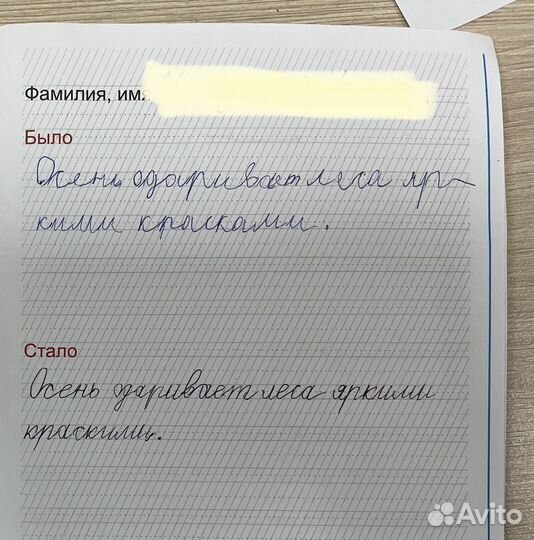 Фамилия, имя
Было
Осень одаривает леса яр-
кими красками.
Стало
Осень одаривает леса яркими
краскими.
Avito